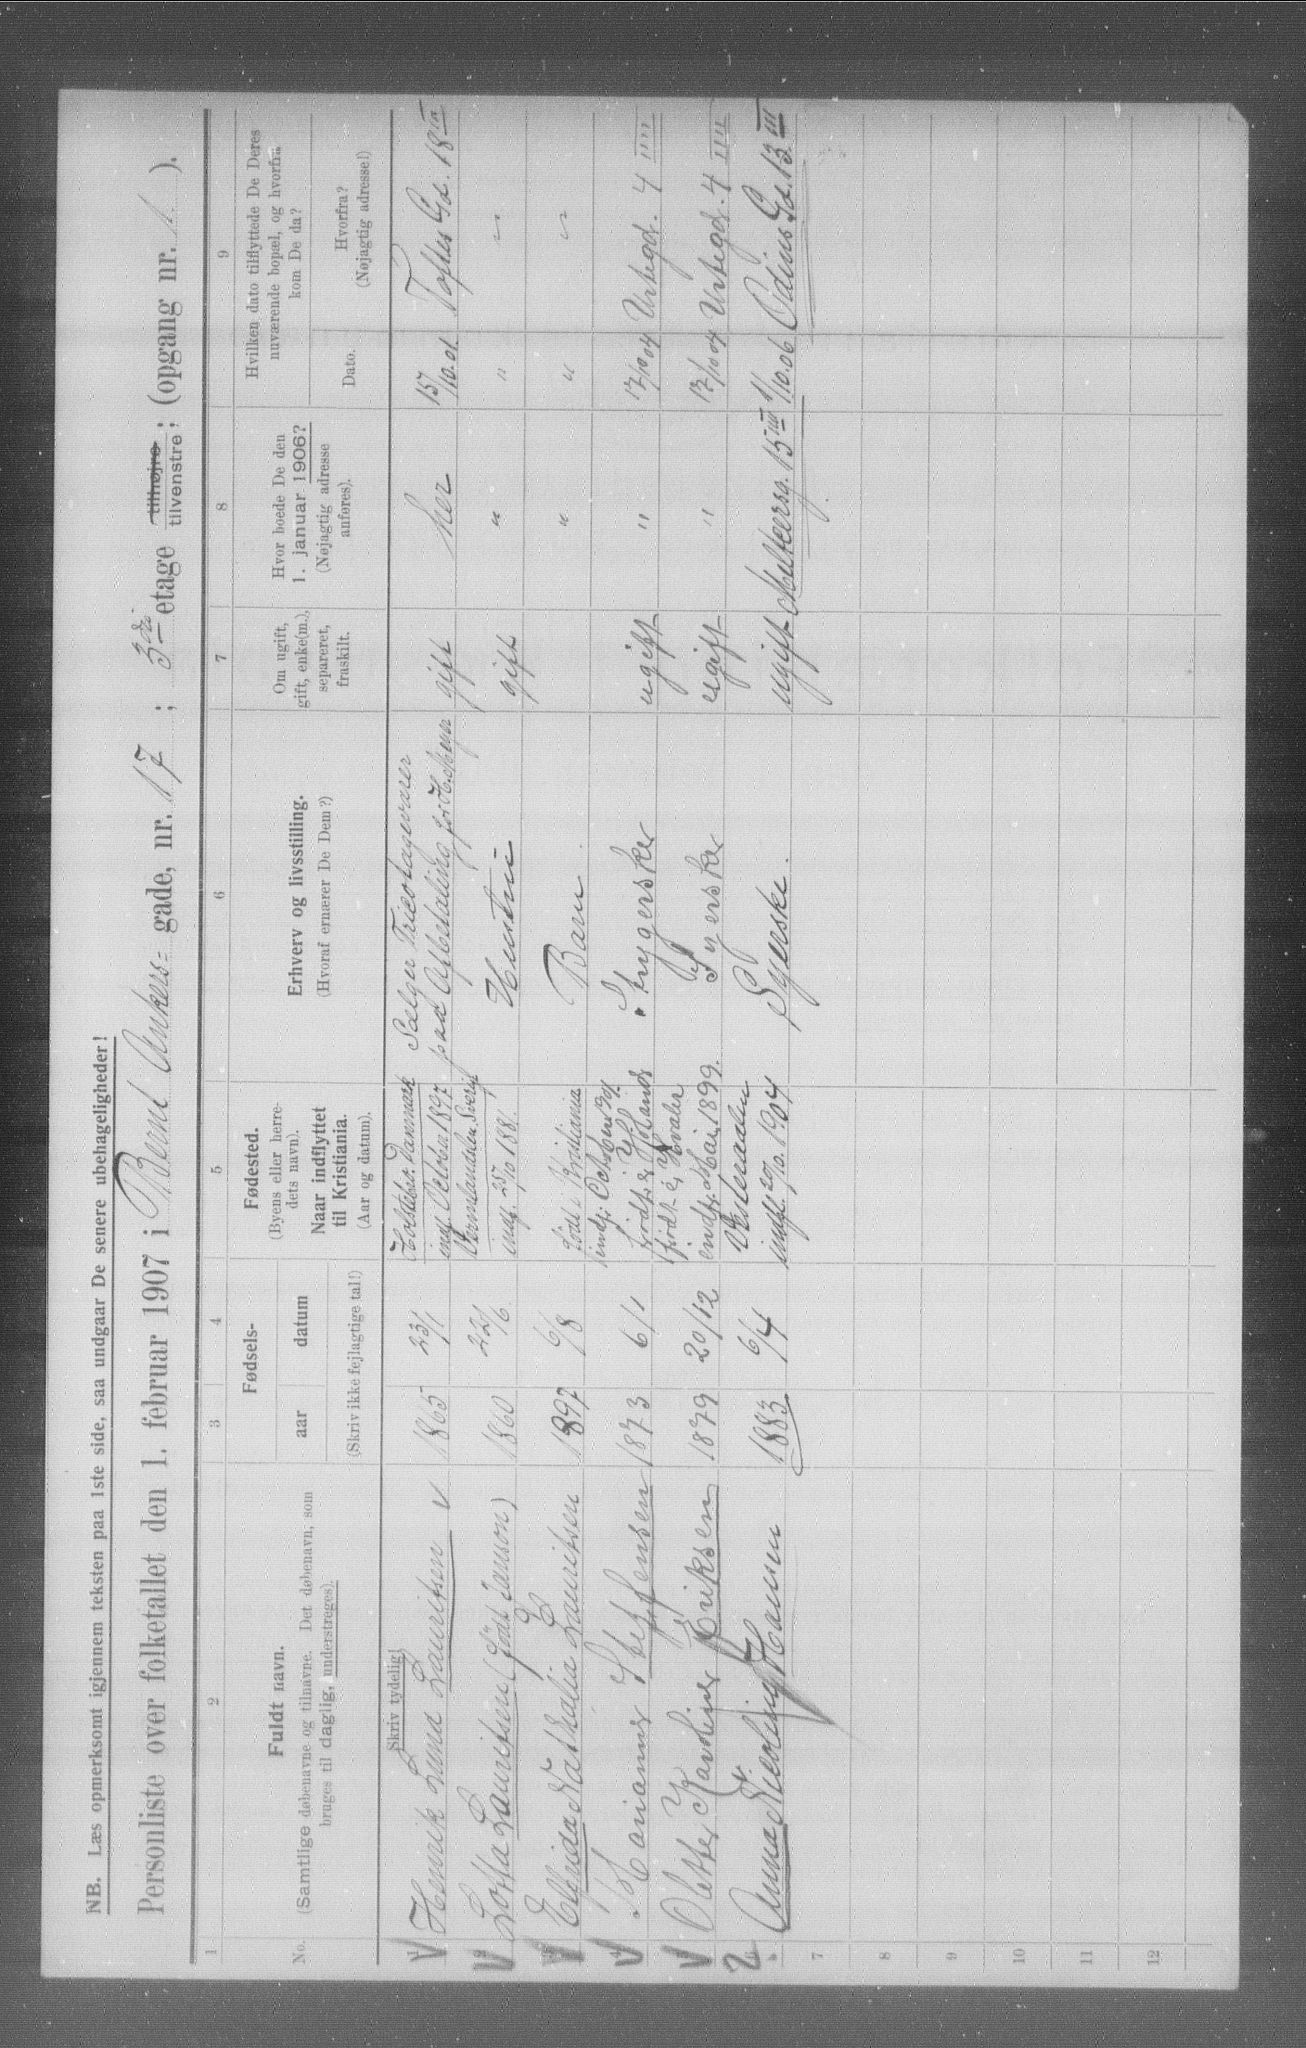 NB. Læs opmerksomt igjennem teksten paa 1ste side, saa undgaar De senere ubehageligheder!
Personliste over folketallet den 1. februar 1907 i Bernt Ankers= gade, nr. 17 ; 3die etage tilhøjre tilvenstre ; (opgang nr. 1 ).
1 2 3 4 5 6 7 8 9
No.
Fuldt navn.
(Samtlige døbenavne og tilnavne. Det døbenavn, som
bruges til daglig, understreges).
Fødsels-
aar datum
(Skriv ikke fejlagtige tal!)
Fødested.
(Byens eller herre-
dets navn).
Naar indflyttet
til Kristiania.
(Aar og datum).
Erhverv og livsstilling.
(Hvoraf ernærer De Dem?)
Om ugift,
gift, enke(m.),
separeret,
fraskilt.
Hvor boede De den
1. januar 1906?
(Nøjagtig adresse
anføres).
Hvilken dato tilflyttede De Deres
nuværende bopæl, og hvorfra
kom De da?
Dato.
Hvorfra?
(Nøjagtig adresse!)
Skriv tydelig!
1 Henrik Lund Lauritsen 1865 23/1 Holstebro Danmark indf. October 1897 Sælger Tricotagevarer paa Afbetaling for gift her 15/10.01 Toftes Gd. 18
2 Lauritsen (født Janson) 1860 22/6 Vermlandsken Sverig indf. 25/10 1881 Hustru gift " " "
3 Elfrida Nathalia E Lauritsen 1897 6/8 født i Kristiania Barn " " "
4 Marianne Steffensen 1873 6/1 indf: October født i Strygerske ugift " 17/10 04 Urtegd. 4 IIII
5 Olette Karoline Eriksen 1879 20/12 født i Hvaler indf. Mai 1899. Syerske ugift " 17/10 04 Urtegd. 4 IIII
6 Anna Nicoline Hansen 1883 6/4 indf. 1904 Syerske. ugift 15 1/10.06 Odins Gd. 13 III
7
8
9
10
11
12